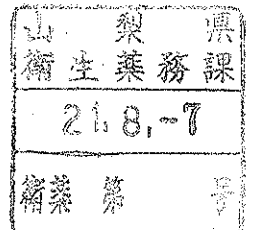 山梨県
衛生薬務課
21.8.-7
衛薬第 号